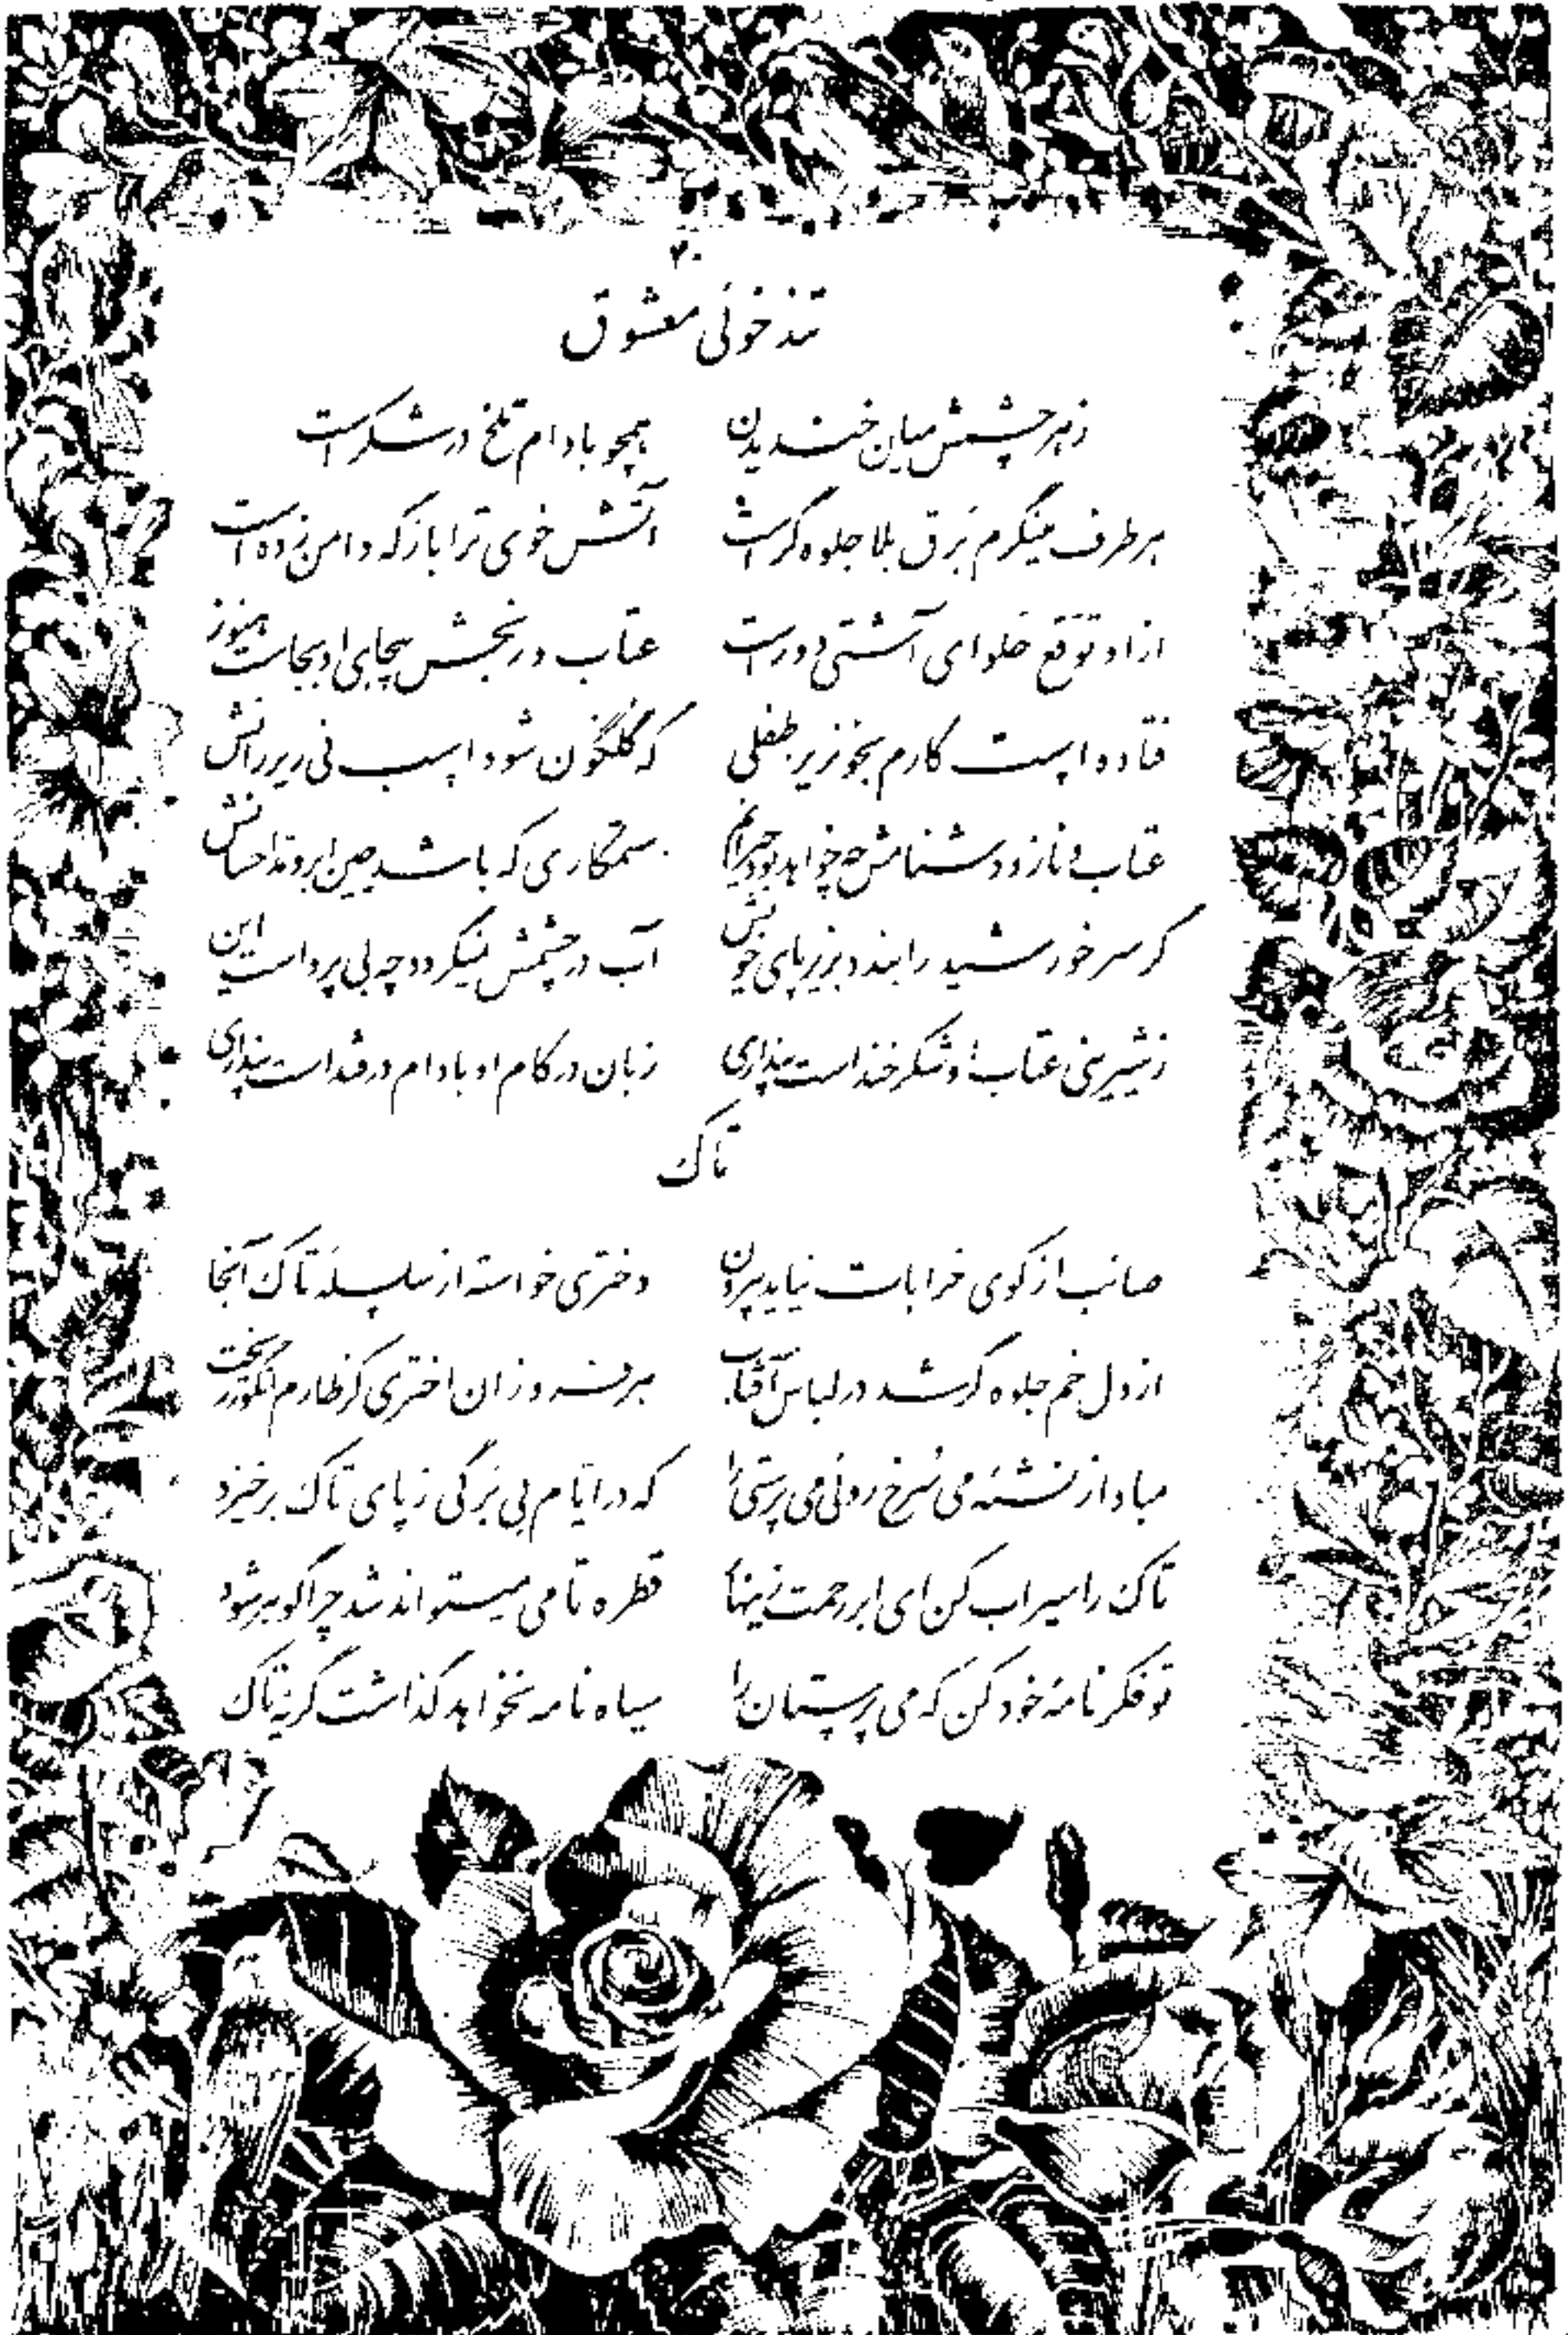 ۲۰
تندخوئی معشوق
زهر چشمش میان خندیدن همچو بادام تلخ در شکر است
هر طرف مینگرم برق بلا جلوه گر است آتش خوی ترا باز که دامن زده است
از او توقع حلوای آشتی دور است عتاب و رنجش بیجای او بجاست هنوز
فتاده است کارم بخونریز طفلی که گلگون شود اسب نی زیر رانش
عتاب و ناز و دشنامش چه خواهد بود حیرانم ستمکاری که باشد چین ابرو مد احسانش
گر سر خورشید را بندد بزیر پای خویش آب در چشمش نمیگردد چه بی پرواست این
ز شیرینی عتاب او شکرخند است پنداری زبان در کام او بادام در قند است پنداری
تاک
صائب از کوی خرابات نیاید بیرون دختری خواسته از سلسلهٔ تاک آنجا
از دل خم جلوه گر شد در لباس آفتاب هر فروزان اختری کز طارم انگور ریخت
مباد از نشئه می سرخ روئی می پرستی را که در ایام بی برگی ز پای تاک برخیزد
تاک را سیراب کن ای ابر رحمت زینهار قطره تا می میتواند شد چرا گوهر شود
تو فکر نامهٔ خود کن که می پرستان را سیاه نامه نخواهد گذاشت گریه تاک